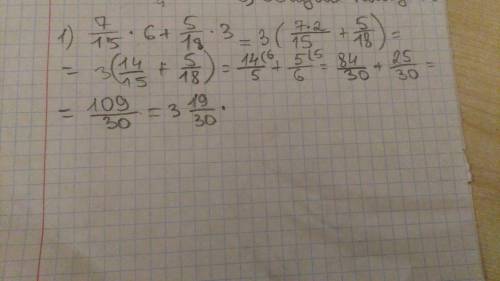 1) 7/15 · 6 + 5/18 · 3 = 3(7·2/15 + 5/18) =
= 3(14/15 + 5/18) = 14(6/5 + 5(5/6 = 84/30 + 25/30 =
= 109/30 = 3 19/30.